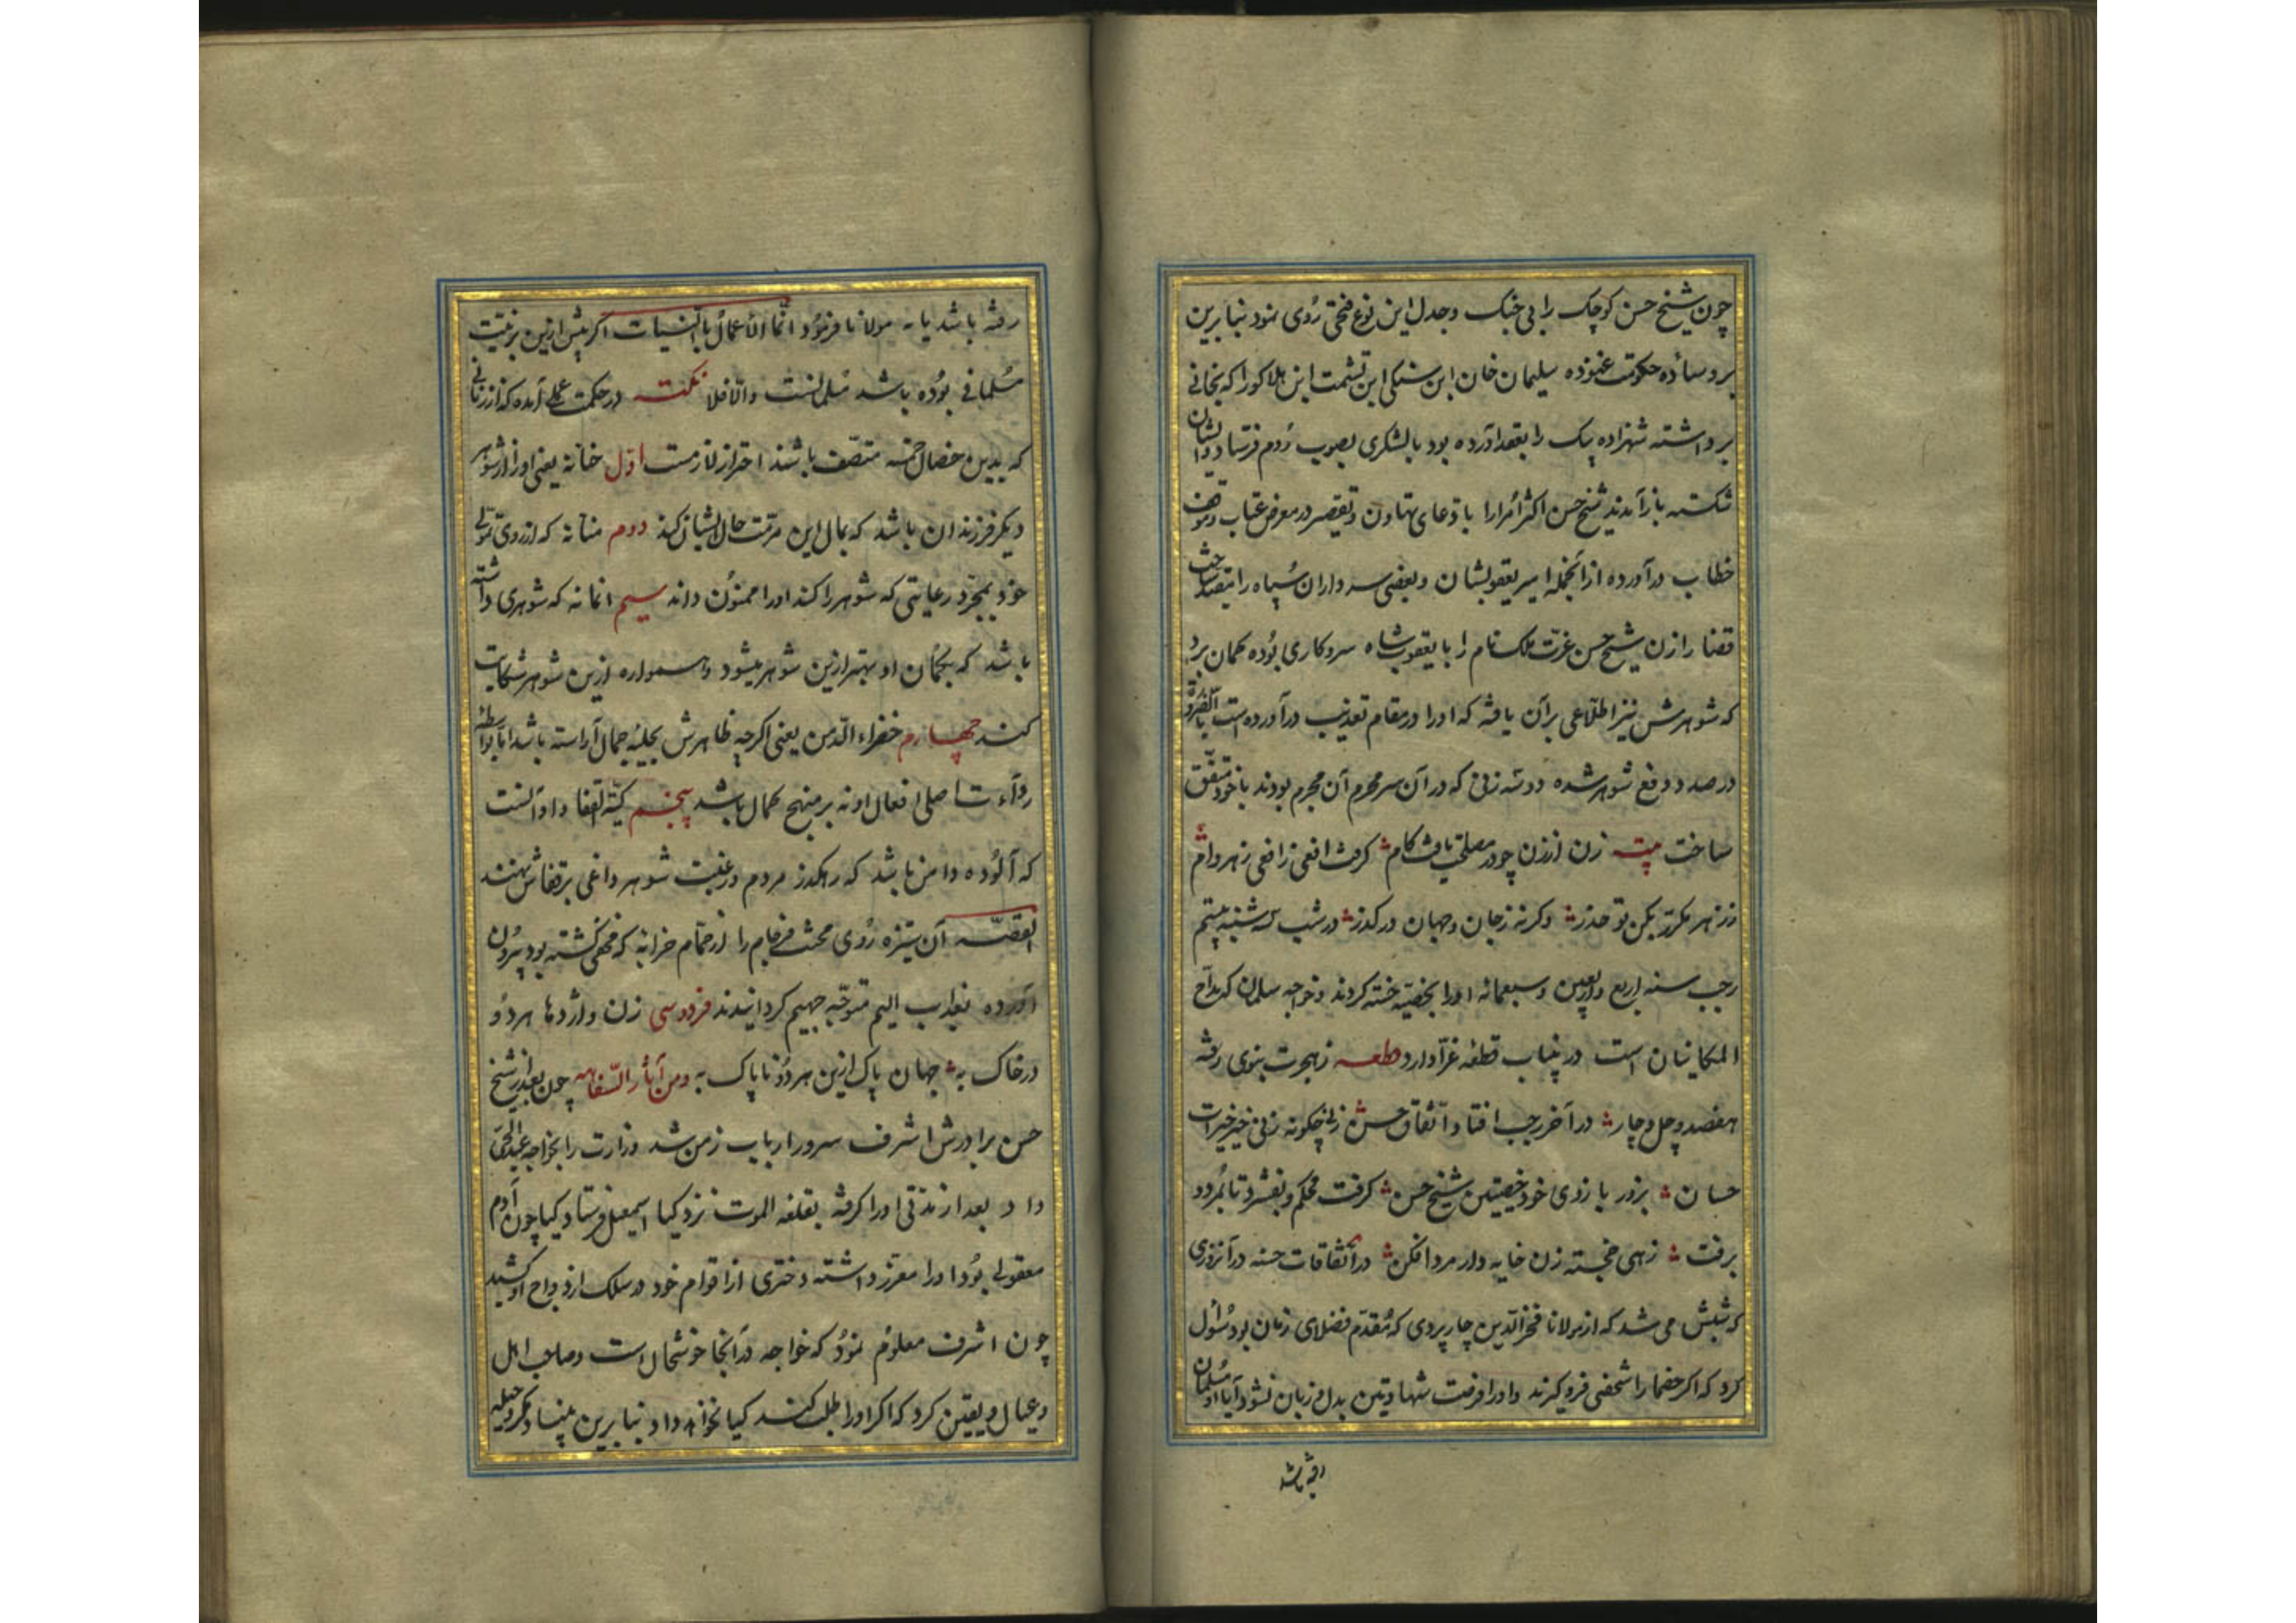 چون شیخ حسن کوچک را بی جنک و جدل این نوع فتحی روی نمود بنابرین
بر وساده حکومت غنوده سلیمان خان ابن سنکی ابن یشمت ابن هلاکو را که بخانی
برداشته شهزاده بیک را بعقد او آورده بود با لشکری بصوب روم فرستاد و ایشان
شکسته باز آمدند شیخ حسن اکثر امرا را با دعای تهاون و تقصیر در معرض عتاب و موقف
خطاب درآورده ازانجمله امیر یعقوبشاه و بعضی سرداران سپاه را مقید ساخت
قضا را زن شیخ حسن عزّت ملک نام را با یعقوب شاه سر و کاری بوده کمان برد
که شوهرش نیز اطلاعی بر آن یافته که او را در مقام تعذیب درآورده است بالضروره
در صدد دفع شوهر شده دو سه زنی که در آن سر محرم آن مجرم بودند با خود متفق
ساخت بیت زن ارزن چو در مصلحت یافت کام کرفت افعی زافعی زهر وام
ز زهر مکرر بکن تو حذر وکرنه ز جان و جهان درکذر در شب سه شنبه بیستم
رجب سنه اربع و اربعین و سبعمائه او را بخصیه خسته کردند و خواجه سلمان که مداح
ایلکانیان است درینباب قطعه غرّا دارد قطعه ز هجرت نبوی رفته
هفصد و چل و چار در آخر رجب افتاد اتفاق حسن زنی چکونه زنی خیر خیرات
حسان بزور بازوی خود خصیتین شیخ حسن کرفت محکم و بفشرد تا بمرد و
برفت زهی خجسته زن خایه دار مرد افکن در اتفاقات حسنه در آنروزی
که شبش می شد که از مولانا فخرالدین چارپردی که مقدم فضلای زمان بود سؤال
کرد که اکر خصمان را شخصی فرو کیرند و او را فرصت شهادتین بدل و زبان نشود آیا او مسلمان
رفته باشد
رفته باشد یا نه مولانا فرمود انّما الاعمال بالنّیات اکر پیش ازین بر نیّت
مسلمانی بوده باشد مسلمانست والّا فلا نکته در حکمت عملی آمده که از زنانی
که بدین خصال خمسه متصّف باشند احتراز لازمست اول حنانه یعنی او را از شوهر
دیکر فرزندان باشد که بمال این مرمّت حال ایشان کند دوم منانه که از روی تمولی
خود بمجرّد رعایتی که شوهر را کند او را ممنون داند سیم انانه که شوهری داشته
باشد که بکمان او بهتر ازین شوهر میشود و همواره ازین شوهر شکایت
کند چهارم خضراء الدّمن یعنی اکرچه ظاهرش بحلیه جمال آراسته باشد اما بواسطه
ردآءت اصلی افعال او نه بر منهج کمال باشد پنجم کیّة القفا و او آنست
که آلوده دامن باشد که رهکذر مردم در غیبت شوهر داغی بر قفاش نهند
القصّه آن تیزه روی محنث فرجام را از حمّام خرابه که مخفی کشته بود بیرون
آورده بعذاب الیم متوجّه جهیم کردانیدند فردوسی زن و اژدها هر دو
در خاک به جهان پاک ازین هر دو ناپاک به ومن آثار السّفاهه چون بعد از شیخ
حسن برادرش اشرف سرور ارباب زمن شد وزارت را بخواجه عبدالحیّ
داد بعد از مدّتی او را کرفته بقلعه الموت نزد کیا اسمعیل فرستاد کیا چون آدم
معقولی بود او را معزز داشته دختری از اقوام خود در سلک ازدواج او کشید
چون اشرف معلوم نمود که خواجه در آنجا خوشحال است و صاحب اهل
و عیال و یقین کرد که اکر او را طلب کند کیا نخواهد داد بنابرین بنیاد مکر و حیله